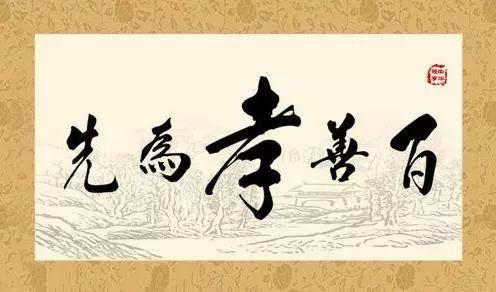 百善孝為先